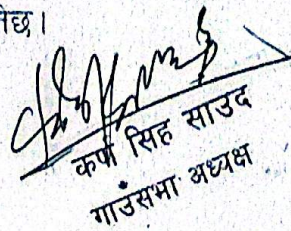 नेछ।
कर्ण सिंह साउद
गाउँसभा अध्यक्ष